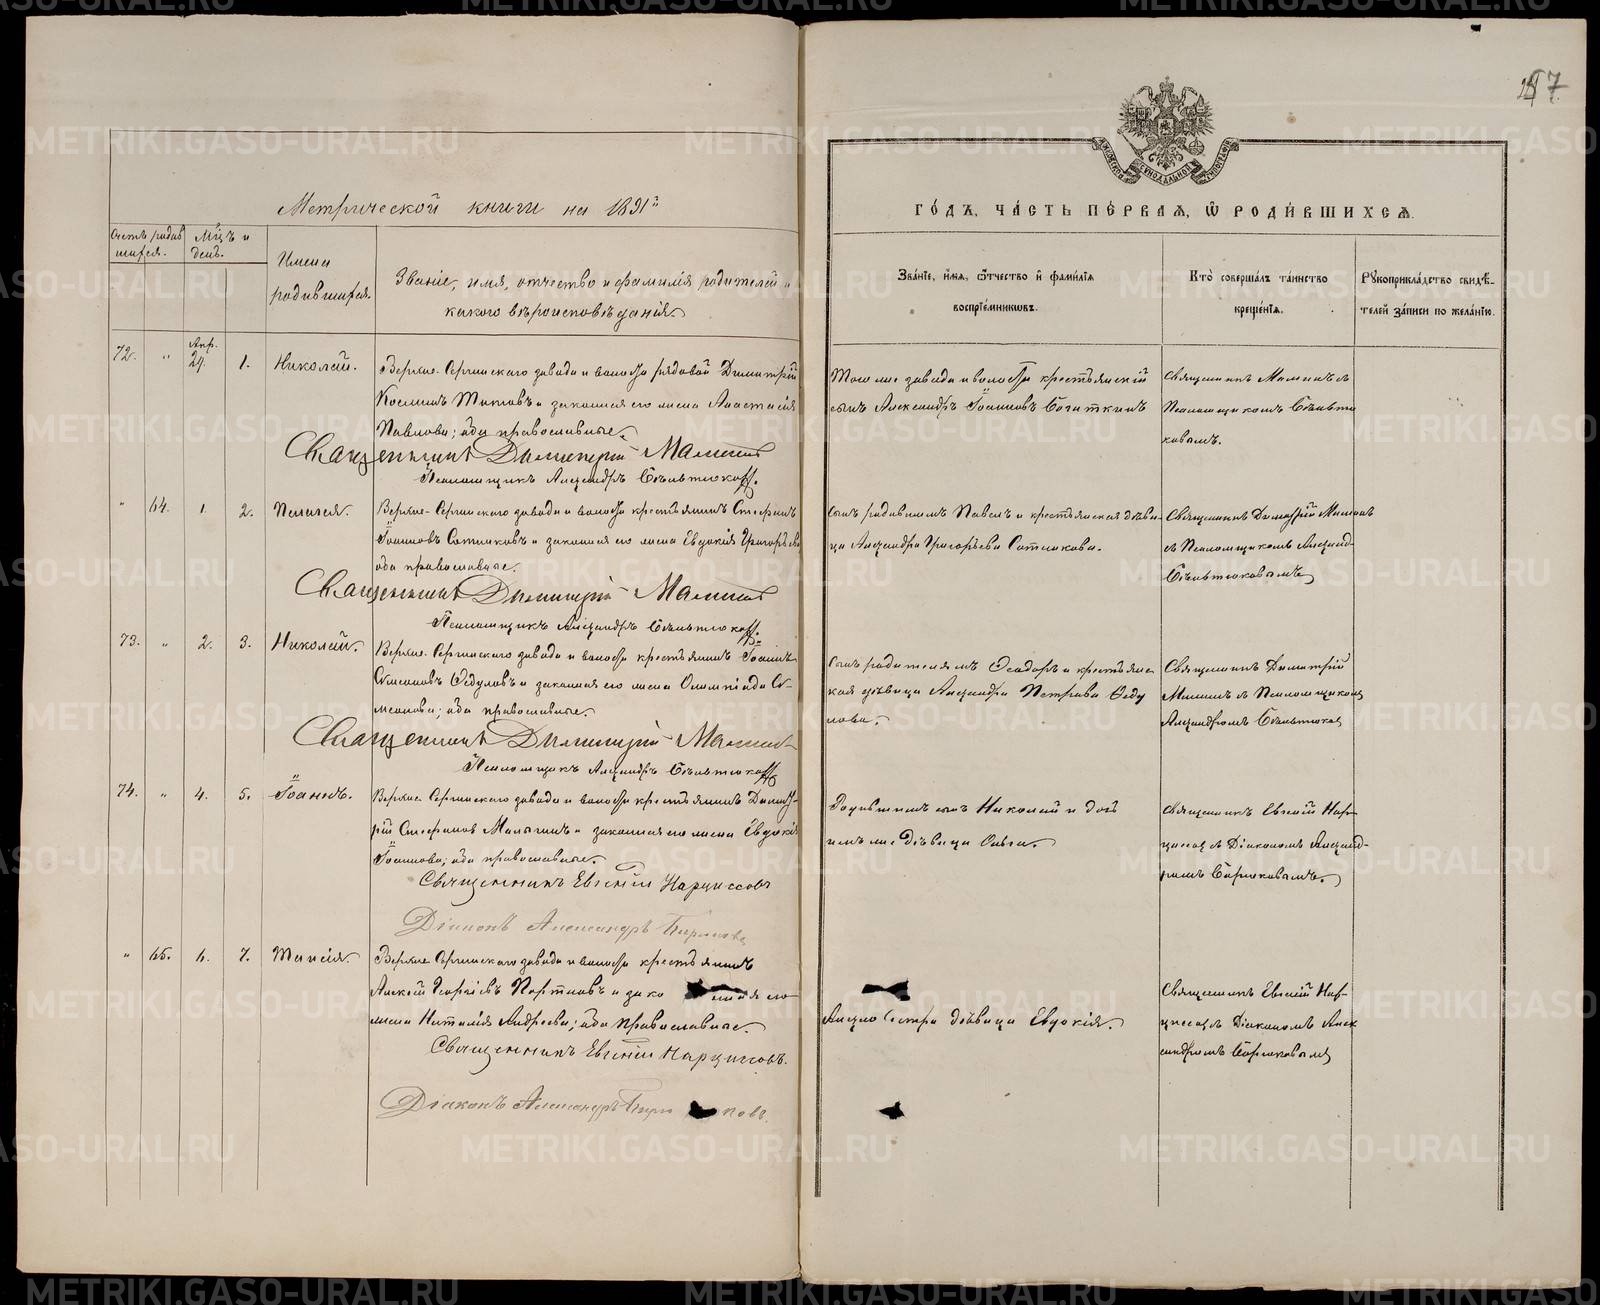 157
Метрической книги на 1891й
ГО́ДЪ, ЧА́СТЬ ПЕ́РВАЯ, Ѿ РОДИ́ВШИХСЯ.
Счетъ родив
шихся.
Мѣ́цъ и
день.
Имена
родившихся.
Званіе, имя, отчество и фамилія родителей и
какого вѣроисповѣданія.
Зва́нїе, и҆́мя, ѻ҆́тчество и҆ фами́лїя
воспрїе́мникѡвъ.
Кто̀ соверша́лъ та́инство
креще́нїя.
Рꙋкоприкла́дство свидѣ́-
телей за́писи по жела́нїю.
72. " Апр. 29. 1. Николай.
Верхне-Сергинскаго завода и волости рядовой Димитрій
Косминъ Титовъ и законная его жена Анастасія
Павлова; оба православные.
Священникъ Димитрій Маминъ
Псаломщикъ Александръ
Того же завода и волости крестьянскій
сынъ Александръ Іоанновъ
Священникъ Маминъ съ
Псаломщикомъ
" 64. 1. 2. Пелагея.
Верхне-Сергинскаго завода и волости крестьянинъ Стефанъ
Іоанновъ и законная его жена Евдокія Григорьева
оба православные.
Священникъ Димитрій Маминъ
Псаломщикъ Александръ
Сынъ родившемъ Павелъ и крестьянская дѣви-
ца Александра Григорьева
Священникъ Димитрій Маминъ
съ Псаломщикомъ Александ-
73. " 2. 3. Николай.
Верхне-Сергинскаго завода и волости крестьянинъ Іоаннъ
Симеоновъ Ѳедуловъ и законная его жена Олимпіада Си-
меонова; оба православные.
Священникъ Димитрій Маминъ
Псаломщикъ Александръ
Сынъ родителямъ Ѳеодоръ и крестьянс-
кая дѣвица Александра Петрова Ѳеду
лова.
Священникъ Димитрій
Маминъ съ Псаломщикомъ
Александромъ
74. " 4. 5. Іоаннъ.
Верхне Сергинскаго завода и волости крестьянинъ Димит-
рій Стефановъ Малыгинъ и законная его жена Евдокія
Іоаннова; оба православные.
Священникъ Евгеній Нарциссовъ
Діаконъ Александръ
Родившимъ сынъ Николай и дочь
ихъ же дѣвица Ольга.
Священникъ Евгеній Нар-
циссовъ съ Діакономъ Александ-
ромъ
" 65. 6. 7. Таисія.
Верхне Сергинскаго завода и волости крестьянинъ
Алексѣй Георгіевъ Портновъ и зако нная его
жена Наталія Андреева; оба православные.
Священникъ Евгеній Нарциссовъ.
Діаконъ Александръ
сестра дѣвица Евдокія.
Священникъ Евгеній Нар-
циссовъ съ Діакономъ Алек
сандромъ
METRIKI.GASO-URAL.RU